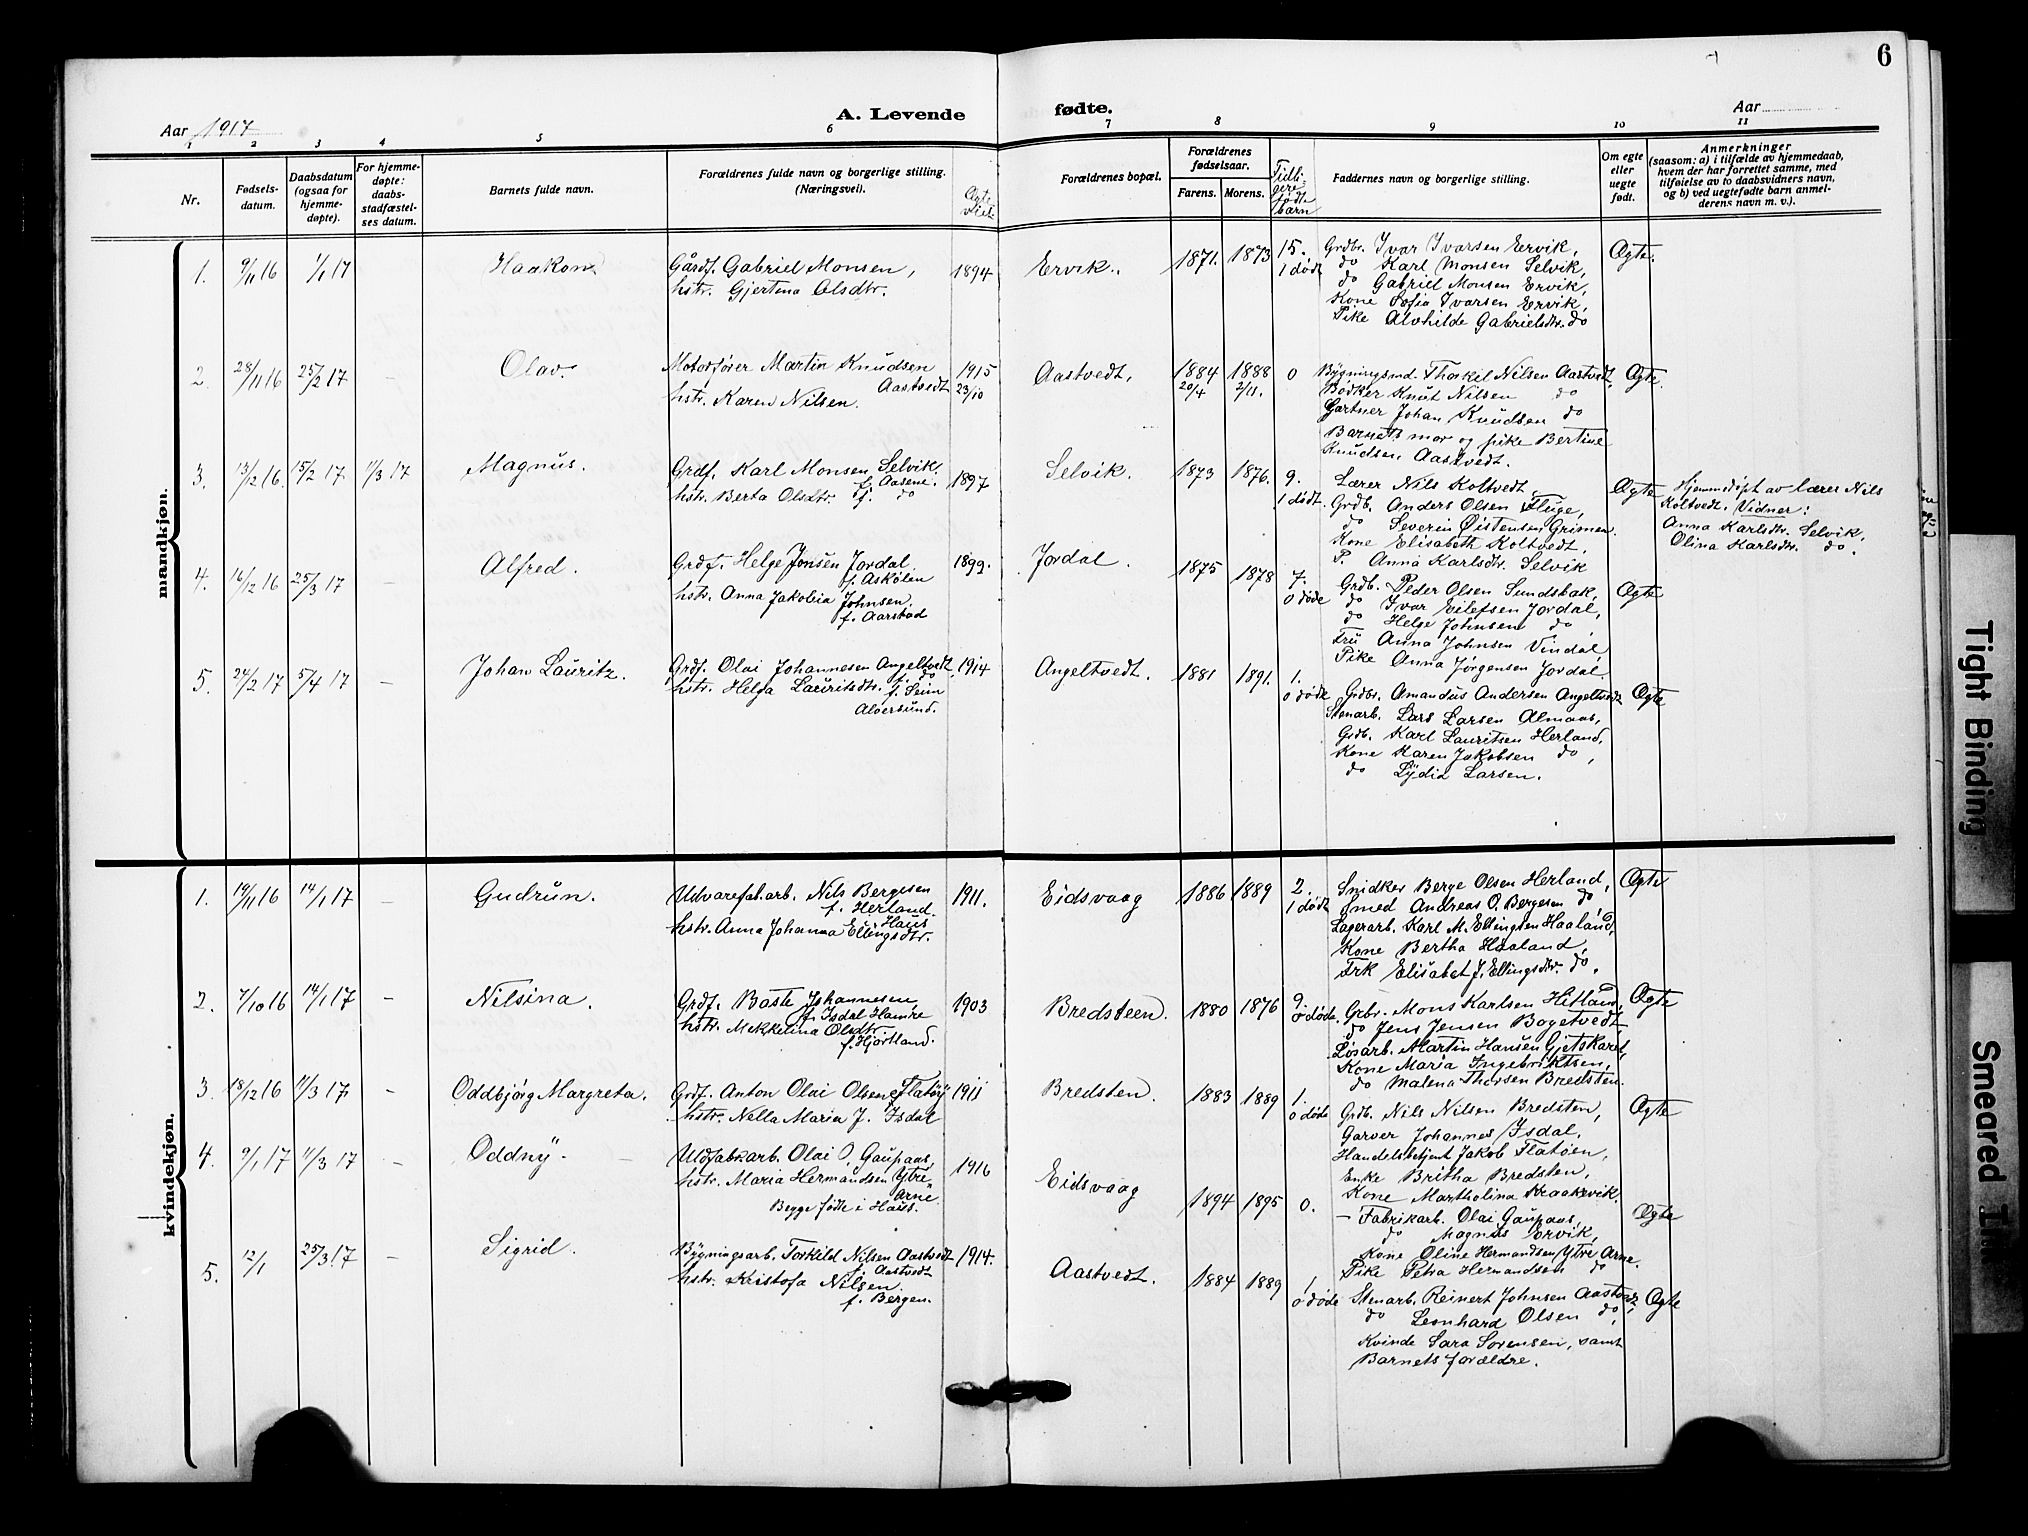 6
A. Levende fødte.
Aar 1917
Aar
1 2 3 4 5 6 7 8 9 10 11
Nr.
Fødsels-
datum.
Daabsdatum
(ogsaa for
hjemme-
døpte).
For hjemme-
døpte:
daabs-
stadfæstel-
ses datum.
Barnets fulde navn.
Forældrenes fulde navn og borgerlige stilling.
(Næringsvei).
Ægte
viet
Forældrenes bopæl.
Forældrenes
fødselsaar.
Farens. Morens.
Tidli-
gere
fødte
barn
Faddernes navn og borgerlige stilling.
Om egte
eller
uegte
født.
Anmerkninger
(saasom: a) i tilfælde av hjemmedaab,
hvem der har forrettet samme, med
tilføielse av to daabsvidners navn,
og b) ved uegtefødte barn anmel-
derens navn m. v.).
mandkjøn.
1. 9/11 16 1/1 17 Haakon.
Gårdf. Gabriel Monsen,
hstr. Gjertina Olsdtr.
1894 Ervik. 1871. 1873 15.
1 død
Grdbr. Ivar Ivarsen Ervik,
do Karl Monsen Selvik,
do Gabriel Monsen Ervik,
Kone Sofia Ivarsen Ervik,
Pike Alvhilde Gabrielsdtr. do
Ægte.
2. 28/11 16 25/2 17 - Olav.
Motorfører Martin Knudsen
Aastvedt
hstr. Karen Nilsen.
1915
23/10
Aastvedt. 1884
20/4
1888
2/11.
0
Bygningsmd. Thorkil Nilsen Aastvedt,
Bødker Knut Nilsen do
Gartner Johan Knudsen do
Barnets mor og pike Bertine
Knudsen, Aastvedt.
Ægte.
3. 13/12 16. 15/2 17 11/3 17 Magnus.
Grdf. Karl Monsen Selvik.
f. Aasene.
hstr. Berta Olsdtr. f. do
1897 Selvik. 1873 1876. 9.
1 død.
Lærer Nils Koltvedt,
Grdb. Anders Olsen Fluge,
do Severin Øistensen Grimen.
Kone Elisabeth Koltvedt,
P. Anna Karlsdtr. Selvik
Ægte
Hjemmedøpt av lærer Nils
Koltvedt. Vidner:
Anna Karlsdtr. Selvik,
Olina Karlsdtr. do.
4. 16/12 16 25/3 17 - Alfred.
Grdf. Helge Jonsen Jordal.
f. Askølen
hstr. Anna Jakobia Johnsen.
f. Aarstad
1899. Jordal. 1875 1878 7.
0 døde
Grdb. Peder Olsen Sundsbak,
do Ivar Eilefsen Jordal,
do Helge Johnsen do,
Fru Anna Johnsen Vindal
Pike Anna Jørgensen Jordal.
Ægte
5. 24/2 17 5/4 17 - Johan Lauritz.
Grdf. Olai Johannesen Angeltvedt
f. do.
hstr. Helga Lauritsdtr. f. Seim
Alversund.
1914 Angeltvedt. 1881 1891. 1.
0 døde
Grdbr. Amandus Andersen Angeltvedt
Stenarb. Lars Larsen Almaas,
Grdb. Karl Lauritsen Herland,
Kone Karen Jakobsen do,
do Lydia Larsen.
Ægte
kvindekjøn.
1. 19/11 16 14/1 17 - Gudrun.
Udvarefab.arb. Nils Bergesen
f. Herland.
Haus
hstr. Anna Johanna Ellingsdtr.
1911. Eidsvaag 1886 1889 2.
1 død
Snidker Berge Olsen Herland,
Smed Andreas O. Bergesen do,
Lagerarb. Karl M. Ellingsen Haaland,
Kone Bertha Haaland,
Frk Elisabet J. Ellingsdtr. do.
Ægte
2. 7/10 16 14/1 17 - Nilsina.
Grdf. Baste Johannesen
f. Isdal Hamre
hstr. Mekkelina Olsdtr.
f. Hjortland.
1903 Bredsteen. 1880 1876 9.
0 døde.
Grbr. Mons Karlsen Hitland,
do Jens Jensen Bogetvedt
Løsarb. Martin Hansen Gjetskaret,
Kone Maria Ingebriktsen,
do Malena Thorsen Bredsten.
Ægte
3. 18/12 16 11/3 17. - Oddbjørg Margreta.
Grdf. Anton Olai Olsen Flatöy
hstr. Nella Maria J. Isdal
1911 Bredsten. 1883 1889 1.
0 døde
Grdb. Nils Nilsen Bredsten,
Garver Johannes Isdal,
Handelsbetjent Jakob Flatøen,
Enke Britha Bredsten,
Kone Martholina Kraakevik.
Ægte
4. 9/1 17 11/3 17 - Oddny -
Uldfabkarb. Olai O. Gaupaas,
hstr. Maria Hermandsen Ytre
Arne
Begge fødte i Haus.
1916 Eidsvaag 1894 1895 0.
- Fabrikarb. Olai Gaupaas,
do Magnus Torvik,
Kone Oline Hermandsen Ytre Arne.
Pike Petra Hermandsen do
Ægte
5. 12/1 25/3 17 - Sigrid.
Bygningsarb. Torkild Nilsen Aastvedt
f. Aastvedt
hstr. Kristofa Nilsen
f. Bergen.
1914. Aastvedt. 1884 1889 1.
0 døde
Stenarb. Reinert Johnsen Aastvedt,
do Leonhard Olsen do,
Kvinde Sara Sorensen, samt
Barnets forældre.
Ægte
Tight Binding
Smeared Ink